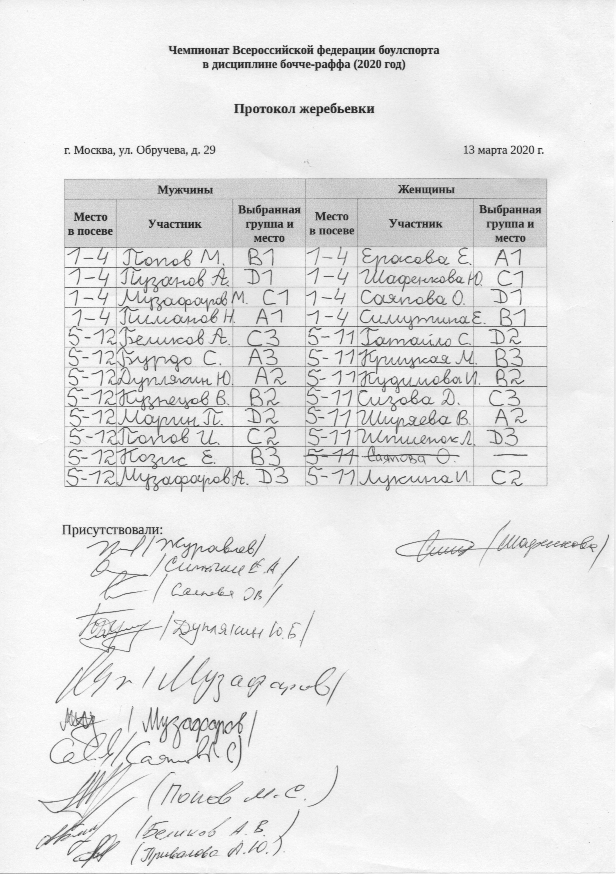 Чемпионат Всероссийской федерации боулспорта
в дисциплине бочче-раффа (2020 год)
Протокол жеребьевки
г. Москва, ул. Обручева, д. 29 13 марта 2020 г.
Мужчины Женщины
Место в посеве Участник Выбранная группа и место Место в посеве Участник Выбранная группа и место
1-4 Попов М. B1 1-4 Ерасова Е. A1
1-4 Пузанов А. D1 1-4 Шафенкова Ю. C1
1-4 Музафаров М. C1 1-4 Саяпова О. D1
1-4 Пиманов Н. A1 1-4 Симутина Е. B1
5-12 Беликов А. C3 5-11 Гатайло С. D2
5-12 Бурдо С. A3 5-11 Крицкая М. B3
5-12 Дуплякин Ю. A2 5-11 Кудимова И. B2
5-12 Кузнецов В. B2 5-11 Сизова Д. C3
5-12 Марин П. D2 5-11 Ширяева В. A2
5-12 Попов И. C2 5-11 Л. D3
5-12 Козик Е. B3 5-11 Саяпова О. —
5-12 Музафаров А. D3 5-11 Лукина И. C2
Присутствовали:
/Журавлов/ /Шафенкова/
/Дуплякин Ю.Б/
/Музафаров/
/Музафаров/
(Попов М.С.)
(Беликов А.В.)
(Привалова А.Ю.).